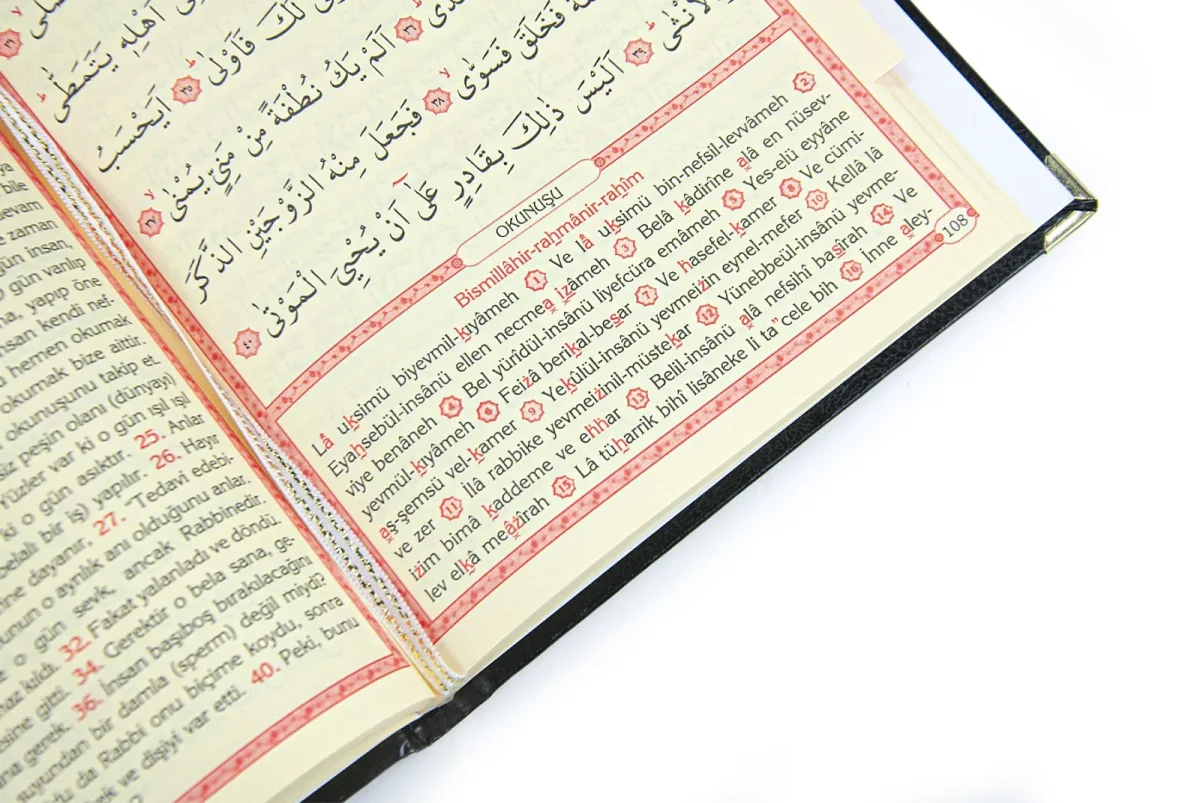 اَهْلِهٖ يَتَمَطّٰى
لَكَ فَاَوْلٰى ٣٥ اَيَحْسَبُ
٣٦ اَلَمْ يَكُ نُطْفَةً مِنْ مَنِيٍّ يُمْنٰى ٣٧
فَخَلَقَ فَسَوّٰى ٣٨ فَجَعَلَ مِنْهُ الزَّوْجَيْنِ الذَّكَرَ
وَالْاُنْثٰى ٣٩ اَلَيْسَ ذٰلِكَ بِقَادِرٍ عَلٰٓى اَنْ يُحْيِيَ الْمَوْتٰى ٤٠
OKUNUŞU
Bismillâhir-rahmânir-rahîm
Lâ uksimü biyevmil-kıyâmeh 1 Ve lâ uksimü bin-nefsil-levvâmeh 2
Eyahsebül-insânü ellen necmea izâmeh 3 Belâ kâdirîne alâ en nüsev-
viye benâneh 4 Bel yürîdül-insânü liyefcüra emâmeh 5 Yes-elü eyyâne
yevmül-kıyâmeh 6 Feizâ berikal-besar 7 Ve hasefel-kamer 8 Ve cümi-
aş-şemsü vel-kamer 9 Yekülül-insânü yevmeizin eynel-mefer 10 Kellâ lâ
ve zer 11 İlâ rabbike yevmeizinil-müstekar 12 Yünebbeül-insânü yevme-
izim bimâ kaddeme ve ehhar 13 Belil-insânü alâ nefsihî basîrah 14 Ve
lev elkâ meâzîrah 15 Lâ tüharrik bihî lisâneke li ta"cele bih 16 İnne aley-
108
bile
devam
zaman
gün insan,
gün varılıp
yapıp öne
insan kendi nef-
hemen okumak
okumak bize aittir.
okunuşunu takip et.
peşin olanı (dünyayı)
Yüzler var ki o gün ışıl ışıl
ki o gün asıktır. 25. Anlar
belalı bir iş) yapılır. 26. Hayır
dayanır. 27. "Tedavi edebi-
o ayrılık anı olduğunu anlar.
o gün sevk, ancak Rabbinedir.
32. Fakat yalanladı ve döndü.
gitti. 34. Gerektir o bela sana, ge-
gerek. 36. İnsan başıboş bırakılacağını
suyundan bir damla (sperm) değil miydi?
da Rabbi onu biçime koydu, sonra
ve dişiyi var etti. 40. Peki, bunu